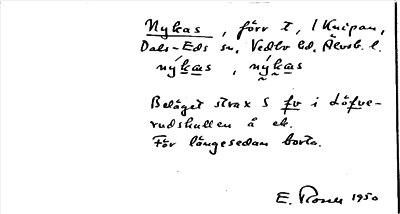 Nykas, förr t, i Knipan,
Dals-Eds sn. Vedbo hd. Älvsb. l.
nýkas, nýkas
Beläget strax S fv i Löfve-
rudshullen å ek.
För längesedan borta.
E. Rosen 1950